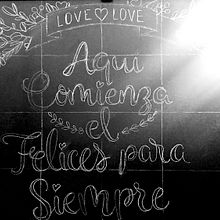 LOVE♡LOVE
Aqui
Comienza
el
Felices para
Siempre